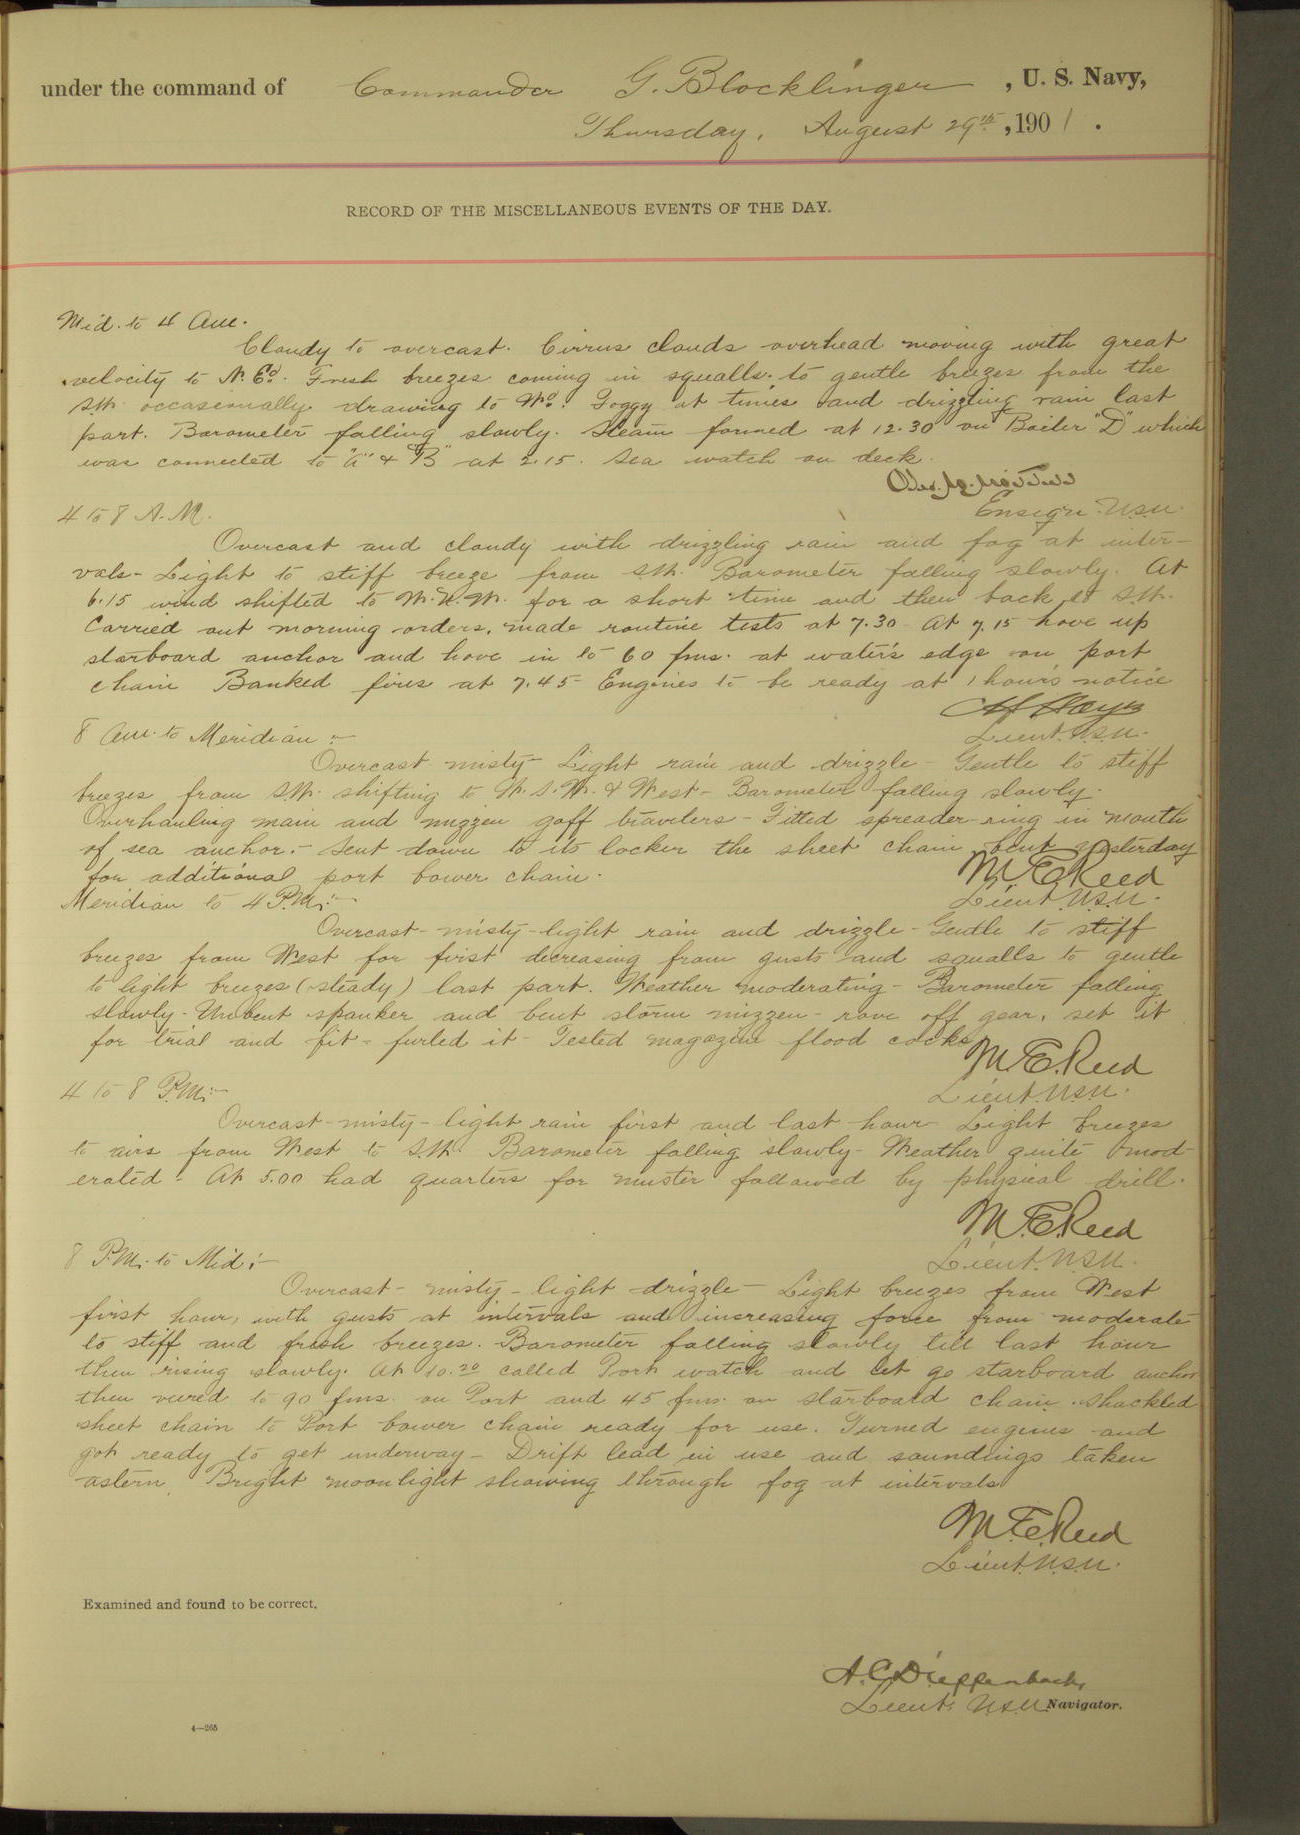 under the command of Commander G. Blocklinger, U. S. Navy,
Thursday, August 29th, 1901.
RECORD OF THE MISCELLANEOUS EVENTS OF THE DAY.
Mid. to 4 am.
Cloudy to overcast. Cirrus clouds overhead moving with great
velocity to N. Ed. Fresh breezes coming in squalls to gentle breezes from the
SW. occasionally drawing to Wd. Foggy at times and drizzling rain last
part. Barometer falling slowly. Steam formed at 12.30 on Boiler "D" which
was connected to "A" & "B" at 2.15. Sea watch on deck.
Ensign U.S.N.
4 to 8 A.M.
Overcast and cloudy with drizzling rain and fog at inter-
vals- Light to stiff breeze from SW. Barometer falling slowly. At
6.15 wind shifted to W.N.W. for a short time and then back to SW.
Carried out morning orders, made routine tests at 7.30 At 7.15 hove up
starboard anchor and hove in to 60 fms. at water's edge on port
chain Banked fires at 7.45- Engines to be ready at 1 hour's notice
Lieut. U.S.N.
8 am. to Meridian:-
Overcast misty- Light rain and drizzle- Gentle to stiff
breezes from SW. shifting to W.S.W. & West- Barometer falling slowly.
Overhauling main and mizzen gaff travelers- Fitted spreader ring in mouth
of sea anchor.- Sent down to its locker the sheet chain bent yesterday
for additional port bower chain.
M. E. Reed
Lieut. U.S.N.
Meridian to 4 P.M.:-
Overcast- misty- light rain and drizzle- Gentle to stiff
breezes from West for first decreasing from gusts and squalls to gentle
to light breezes (steady) last part. Weather moderating- Barometer falling
slowly- Unbent spanker and bent storm mizzen- rove off gear, set it
for trial and fit- furled it- Tested magazine flood cocks
M. E. Reed
Lieut. U.S.N.
4 to 8 P.M.:-
Overcast- misty- light rain first and last hour- Light breezes
to airs from West to SW. Barometer falling slowly- Weather quite mod-
erated- At 5.00 had quarters for muster followed by physical drill.
M. E. Reed
Lieut. U.S.N.
8 P.M. to Mid:-
Overcast- misty- light drizzle- Light breezes from West
first hour, with gusts at intervals and increasing force from moderate
to stiff and fresh breezes. Barometer falling slowly till last hour
then rising slowly. At 10.20 called Port watch and let go starboard anchor
then veered to 90 fms. on Port and 45 fms. on starboard chain. Shackled
sheet chain to Port bower chain ready for use. Turned engines and
got ready to get underway- Drift lead in use and soundings taken
astern. Bright moonlight showing through fog at intervals
M. E. Reed
Lieut. U.S.N.
Examined and found to be correct.
A. C. Dieffenbach,
Lieut. U.S.N. Navigator.
4—265